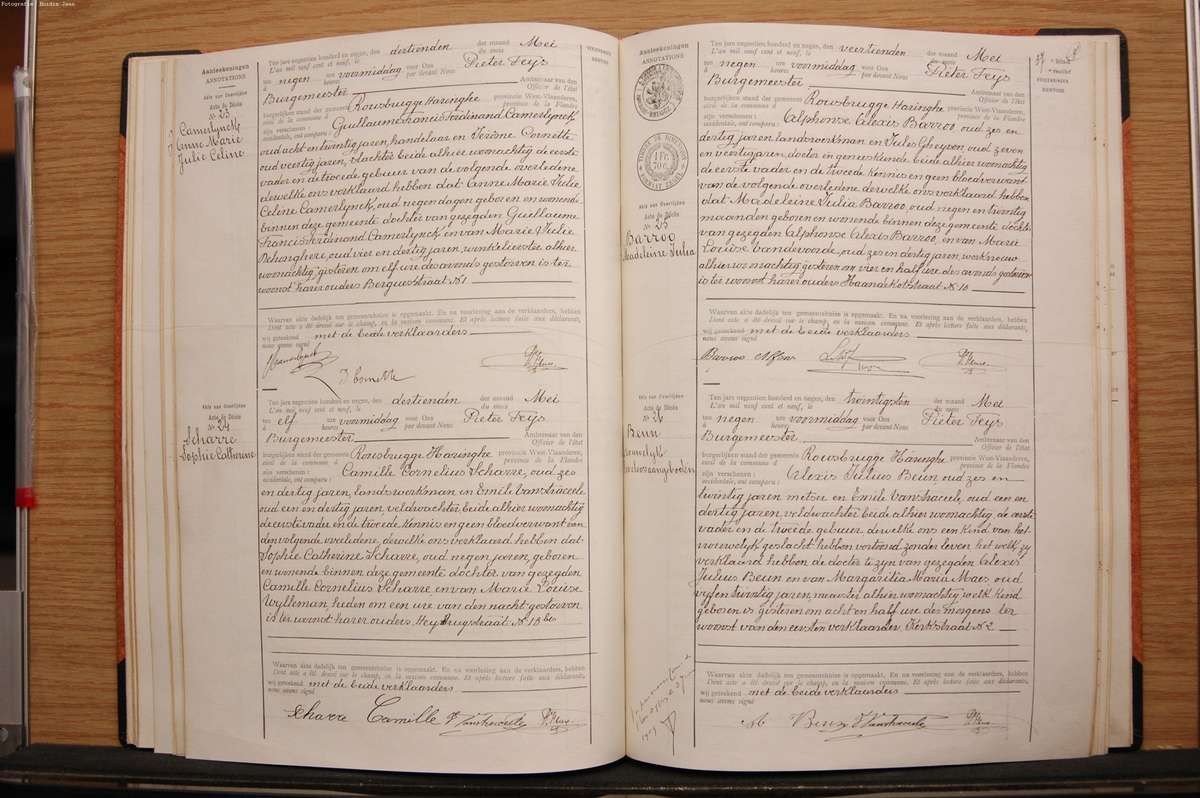 Fotografie: Houdin Jean
Aanteekeningen
ANNOTATIONS
Akte van Overlijden
Acte de Décès
№ 23
Camerlynck
Anne Marie
Julie Celine
Ten jare negentien honderd en negen, den dertienden der maand Mei
L'an mil neuf cent et neuf, le du mois
te negen ure voormiddag voor Ons Pieter Feys
à heures par devant Nous
Burgemeester Ambtenaar van den
Officier de l'état
burgerlijken stand der gemeente Rousbrugge Haringhe provincie West-Vlaanderen,
civil de la commune d province de la Flandre
zijn verschenen: Guillaume Francis Ferdinand Camerlynck
occidentale, ont comparu:
oud acht en twintig jaren, handelaar en Jérôme Cornette
oud veertig jaren, slachter beide alhier woonachtig de eerste
vader en de tweede gebuur van de volgende overledene
dewelke ons verklaard hebben dat Anne Marie Julie
Celene Camerlynck, oud negen dagen geboren en wonende
binnen deze gemeente dochter van gezegden Guillaume
Francis Ferdinand Camerlynck, en van Marie Julie
Dehonghere, oud vier en dertig jaren, winkelierster alhier
woonachtig gisteren om elf ure des avonds gestorven is ter
woonst harer ouders Berguesstraat № 1
Waarvan akte dadelijk ten gemeentehuize is opgemaakt. En na voorlezing aan de verklaarders, hebben
Dont acte a été dressé sur le champ, en la maison commune. Et après lecture faite aux déclarants,
wij geteekend met de beide verklaarders
nous avons signé
Camerlynck
J Cornette
Akte van Overlijden
Acte de Décès
№ 24
Scharre
Sophie Catherine
Ten jare negentien honderd en negen, den dertienden der maand Mei
L'an mil neuf cent et neuf, le du mois
te elf ure voormiddag voor Ons Pieter Feys
à heures par devant Nous
Burgemeester Ambtenaar van den
Officier de l'état
burgerlijken stand der gemeente Rousbrugge Haringhe provincie West-Vlaanderen,
civil de la commune d province de la Flandre
zijn verschenen: Camille Cornelius Scharre, oud zes
occidentale, ont comparu:
en dertig jaren, landswerkman en Emile Vanstraceele
oud een en dertig jaren, veldwachter beide alhier woonachtig
de eerste vader en de tweede kennis en geen bloedverwant van
den volgende overledene, dewelke ons verklaard hebben dat
Sophie Catherine Scharre, oud negen jaren, geboren
en wonende binnen deze gemeente dochter van gezegden
Camille Cornelius Scharre en van Marie Louise
Wylleman, heden om een ure van den nacht gestorven
is ter woonst harer ouders, Heybrugstraat № 13 bis
Waarvan akte dadelijk ten gemeentehuize is opgemaakt. En na voorlezing aan de verklaarders, hebben
Dont acte a été dressé sur le champ, en la maison commune. Et après lecture faite aux déclarants,
wij geteekend met de beide verklaarders
nous avons signé
Scharre Camille E Vanstraceele
Aanteekeningen
ANNOTATIONS
1 FR 50 C
Akte van Overlijden
Acte de Décès
№ 25
Barroo
Madeleine Julia
Ten jare negentien honderd en negen, den veertienden der maand Mei
L'an mil neuf cent et neuf, le du mois
te negen ure voormiddag voor Ons Pieter Feys
à heures par devant Nous
Burgemeester Ambtenaar van den
Officier de l'état
burgerlijken stand der gemeente Rousbrugge Haringhe provincie West-Vlaanderen,
civil de la commune d province de la Flandre
zijn verschenen: Alphonse Alexis Barroo, oud zes en
occidentale, ont comparu:
dertig jaren, landswerkman en Jules Gheysen, oud zeven
en veertig jaren, doctor en geneeskunde beide alhier woonachtig
de eerste vader en de tweede kennis en geen bloedverwant
van de volgende overledene dewelke ons verklaard hebben
dat Madeleine Julia Barroo, oud negen en twintig
maanden geboren en wonende binnen deze gemeente dochter
van gezegden Alphonse Alexis Barroo, en van Marie
Louise Vandevoorde, oud zes en dertig jaren, werkvrouw
alhier woonachtig gisteren om vier en half ure des avonds gestorven
is ter woonst harer ouders Haandekotstraat № 10
Waarvan akte dadelijk ten gemeentehuize is opgemaakt. En na voorlezing aan de verklaarders, hebben
Dont acte a été dressé sur le champ, en la maison commune. Et après lecture faite aux déclarants,
wij geteekend met de beide verklaarders
nous avons signé
Barroo Alfons
Akte van Overlijden
Acte de Décès
№ 26
Beun
Ten jare negentien honderd en negen, den twintigsten der maand Mei
L'an mil neuf cent et neuf, le du mois
te negen ure voormiddag voor Ons Pieter Feys
à heures par devant Nous
Burgemeester Ambtenaar van den
Officier de l'état
burgerlijken stand der gemeente Rousbrugge Haringhe provincie West-Vlaanderen,
civil de la commune d province de la Flandre
zijn verschenen: Alexis Julius Beun oud zes en
occidentale, ont comparu:
twintig jaren metser en Emile Vanstraceele oud een en
dertig jaren, veldwachter beide alhier woonachtig de eerste
vader en de tweede gebuur, dewelke ons een kind van het
vrouwelyk geslacht hebben vertoond zonder leven, het welk zy
verklaard hebben de docter te zyn van gezegden Alexis
Julius Beun en van Margaritha Maria Maes oud
vyf en twintig jaren, naaister alhier woonachtig welk kind
geboren is gisteren om acht en half ure des morgens ter
woonst van den eersten verklaarder, Kerkstraat № 2
Waarvan akte dadelijk ten gemeentehuize is opgemaakt. En na voorlezing aan de verklaarders, hebben
Dont acte a été dressé sur le champ, en la maison commune. Et après lecture faite aux déclarants,
wij geteekend met de beide verklaarders
nous avons signé
Beun E Vanstraceele